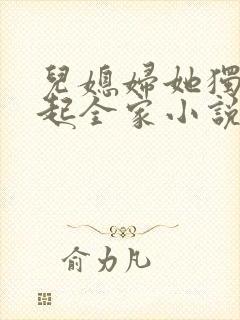 兒媳婦她獨
起全家小説
俞力凡